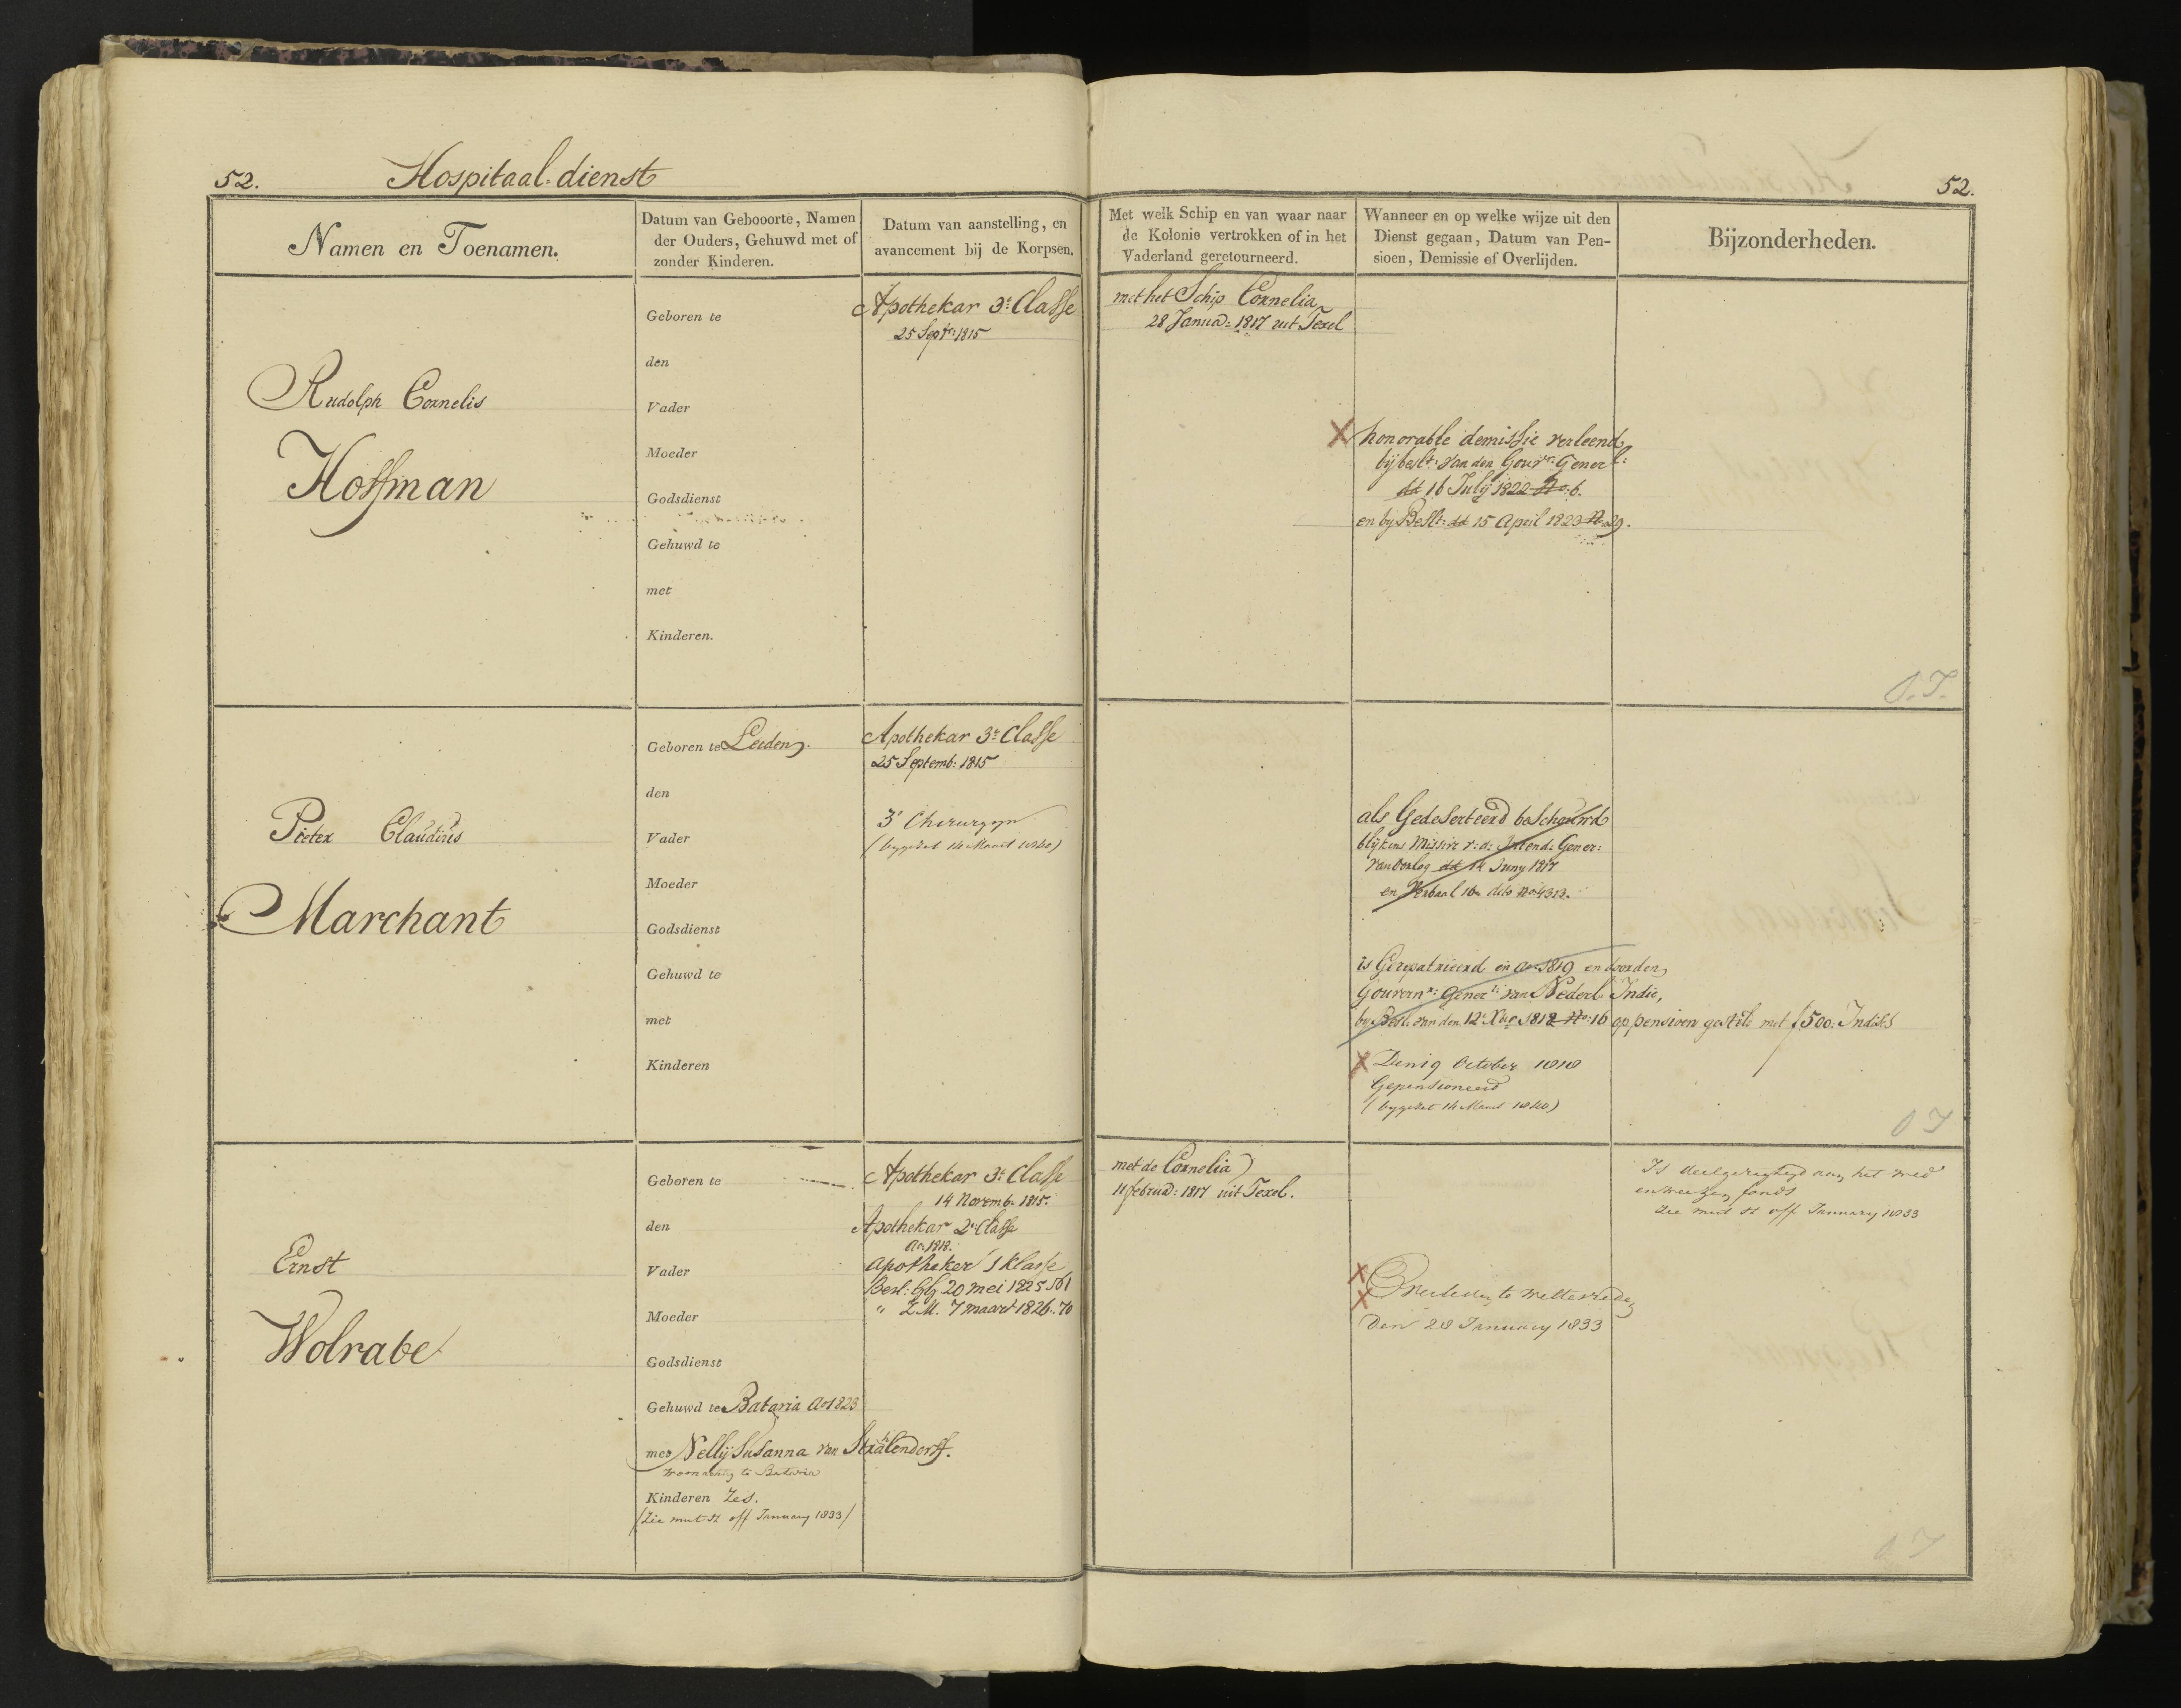 52.
Hospitaal-dienst
52.
Namen en Toenamen.
Datum van Gebooorte, Namen
der Ouders, Gehuwd met of
zonder Kinderen.
Datum van aanstelling, en
avancement bij de Korpsen.
Met welk Schip en van waar naar
de Kolonie vertrokken of in het
Vaderland geretourneerd.
Wanneer en op welke wijze uit den
Dienst gegaan, Datum van Pen-
sioen, Demissie of Overlijden.
Bijzonderheden.
Rudolph Cornelis
Hoffman
Geboren te
den
Vader
Moeder
Godsdienst
Gehuwd te
met
Kinderen.
Apothekar 3e Classe
25 Septr: 1815
met het Schip Cornelia
28 Janua: 1817 uit Texel
honorable demissie verleend
bij beslt: van den Gouvr: Generl:
dd 16 Julij 1822 No: 6.
en bij Beslt: dd 15 April 1823 No 29.
O.I.
Pieter Claudius
Marchant
Geboren te Leeden
den
Vader
Moeder
Godsdienst
Gehuwd te
met
Kinderen
Apothekar 3e Classe
25 Septemb: 1815
3e Chirurgyn
(bygezet 14 Maart 1840)
als Gedeserteerd beschouwd
blijkens Missive v: d: Intend: Gener:
van Oorlog dd 14 Juny 1817
en Verbaal 16n dito No 4313.
is Gerepatrieerd in Ao 1819 en door den
Gouvernr: Generl: van Nederl Indie,
by Besl: van den 12e Xber 1818 No: 16 op pensioen gesteld met f 500: Indisch
Den 19 October 1818
Gepensioneerd
(bygezet 14 Maart 1840)
O I
Ernst
Wolrabe
Geboren te
den
Vader
Moeder
Godsdienst
Gehuwd te Batavia Ao 1823
met Nellij Susanna van Stralendorff.
woonachtig te Batavia
Kinderen Zes.
(Zie mut st off January 1833)
Apothekar 3e Classe
14 Novemb: 1815.
Apothekar 2e Classe
Ao 1818.
Apotheker 1 Klasse
Besl: GG 20 mei 1825 No 1
" Z.M. 7 maart 1826. 70
met de Cornelia
11 februa: 1817 uit Texel.
Overleden te Weltevreden
Den 28 January 1833
Is deelgeregtigd aan het wed
en weezen fonds
Zie mut st off January 1833
O I